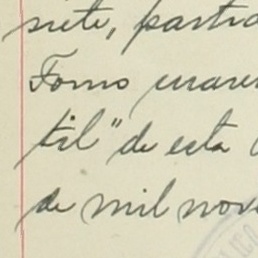 siete, partid
Tomo cuaren
til" de esta
de mil nove